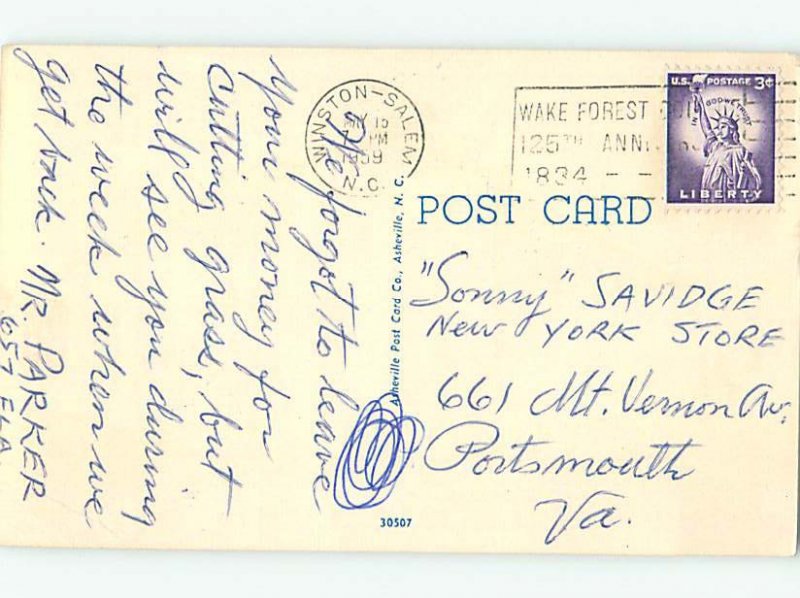 We forgot to leave
your money for
cutting grass, but
will see you during
the week when we
get back. MR. PARKER
657 ELA.
WINSTON-SALEM
15
PM
1959
N.C.
WAKE FOREST
125TH ANNI
1834 - -
U.S. POSTAGE 3¢
IN GOD WE TRUST
LIBERTY
POST CARD
Asheville Post Card Co., Asheville, N. C.
30507
"Sonny" SAVIDGE
NEW YORK STORE
661 Mt. Vernon Av.
Portsmouth
Va.